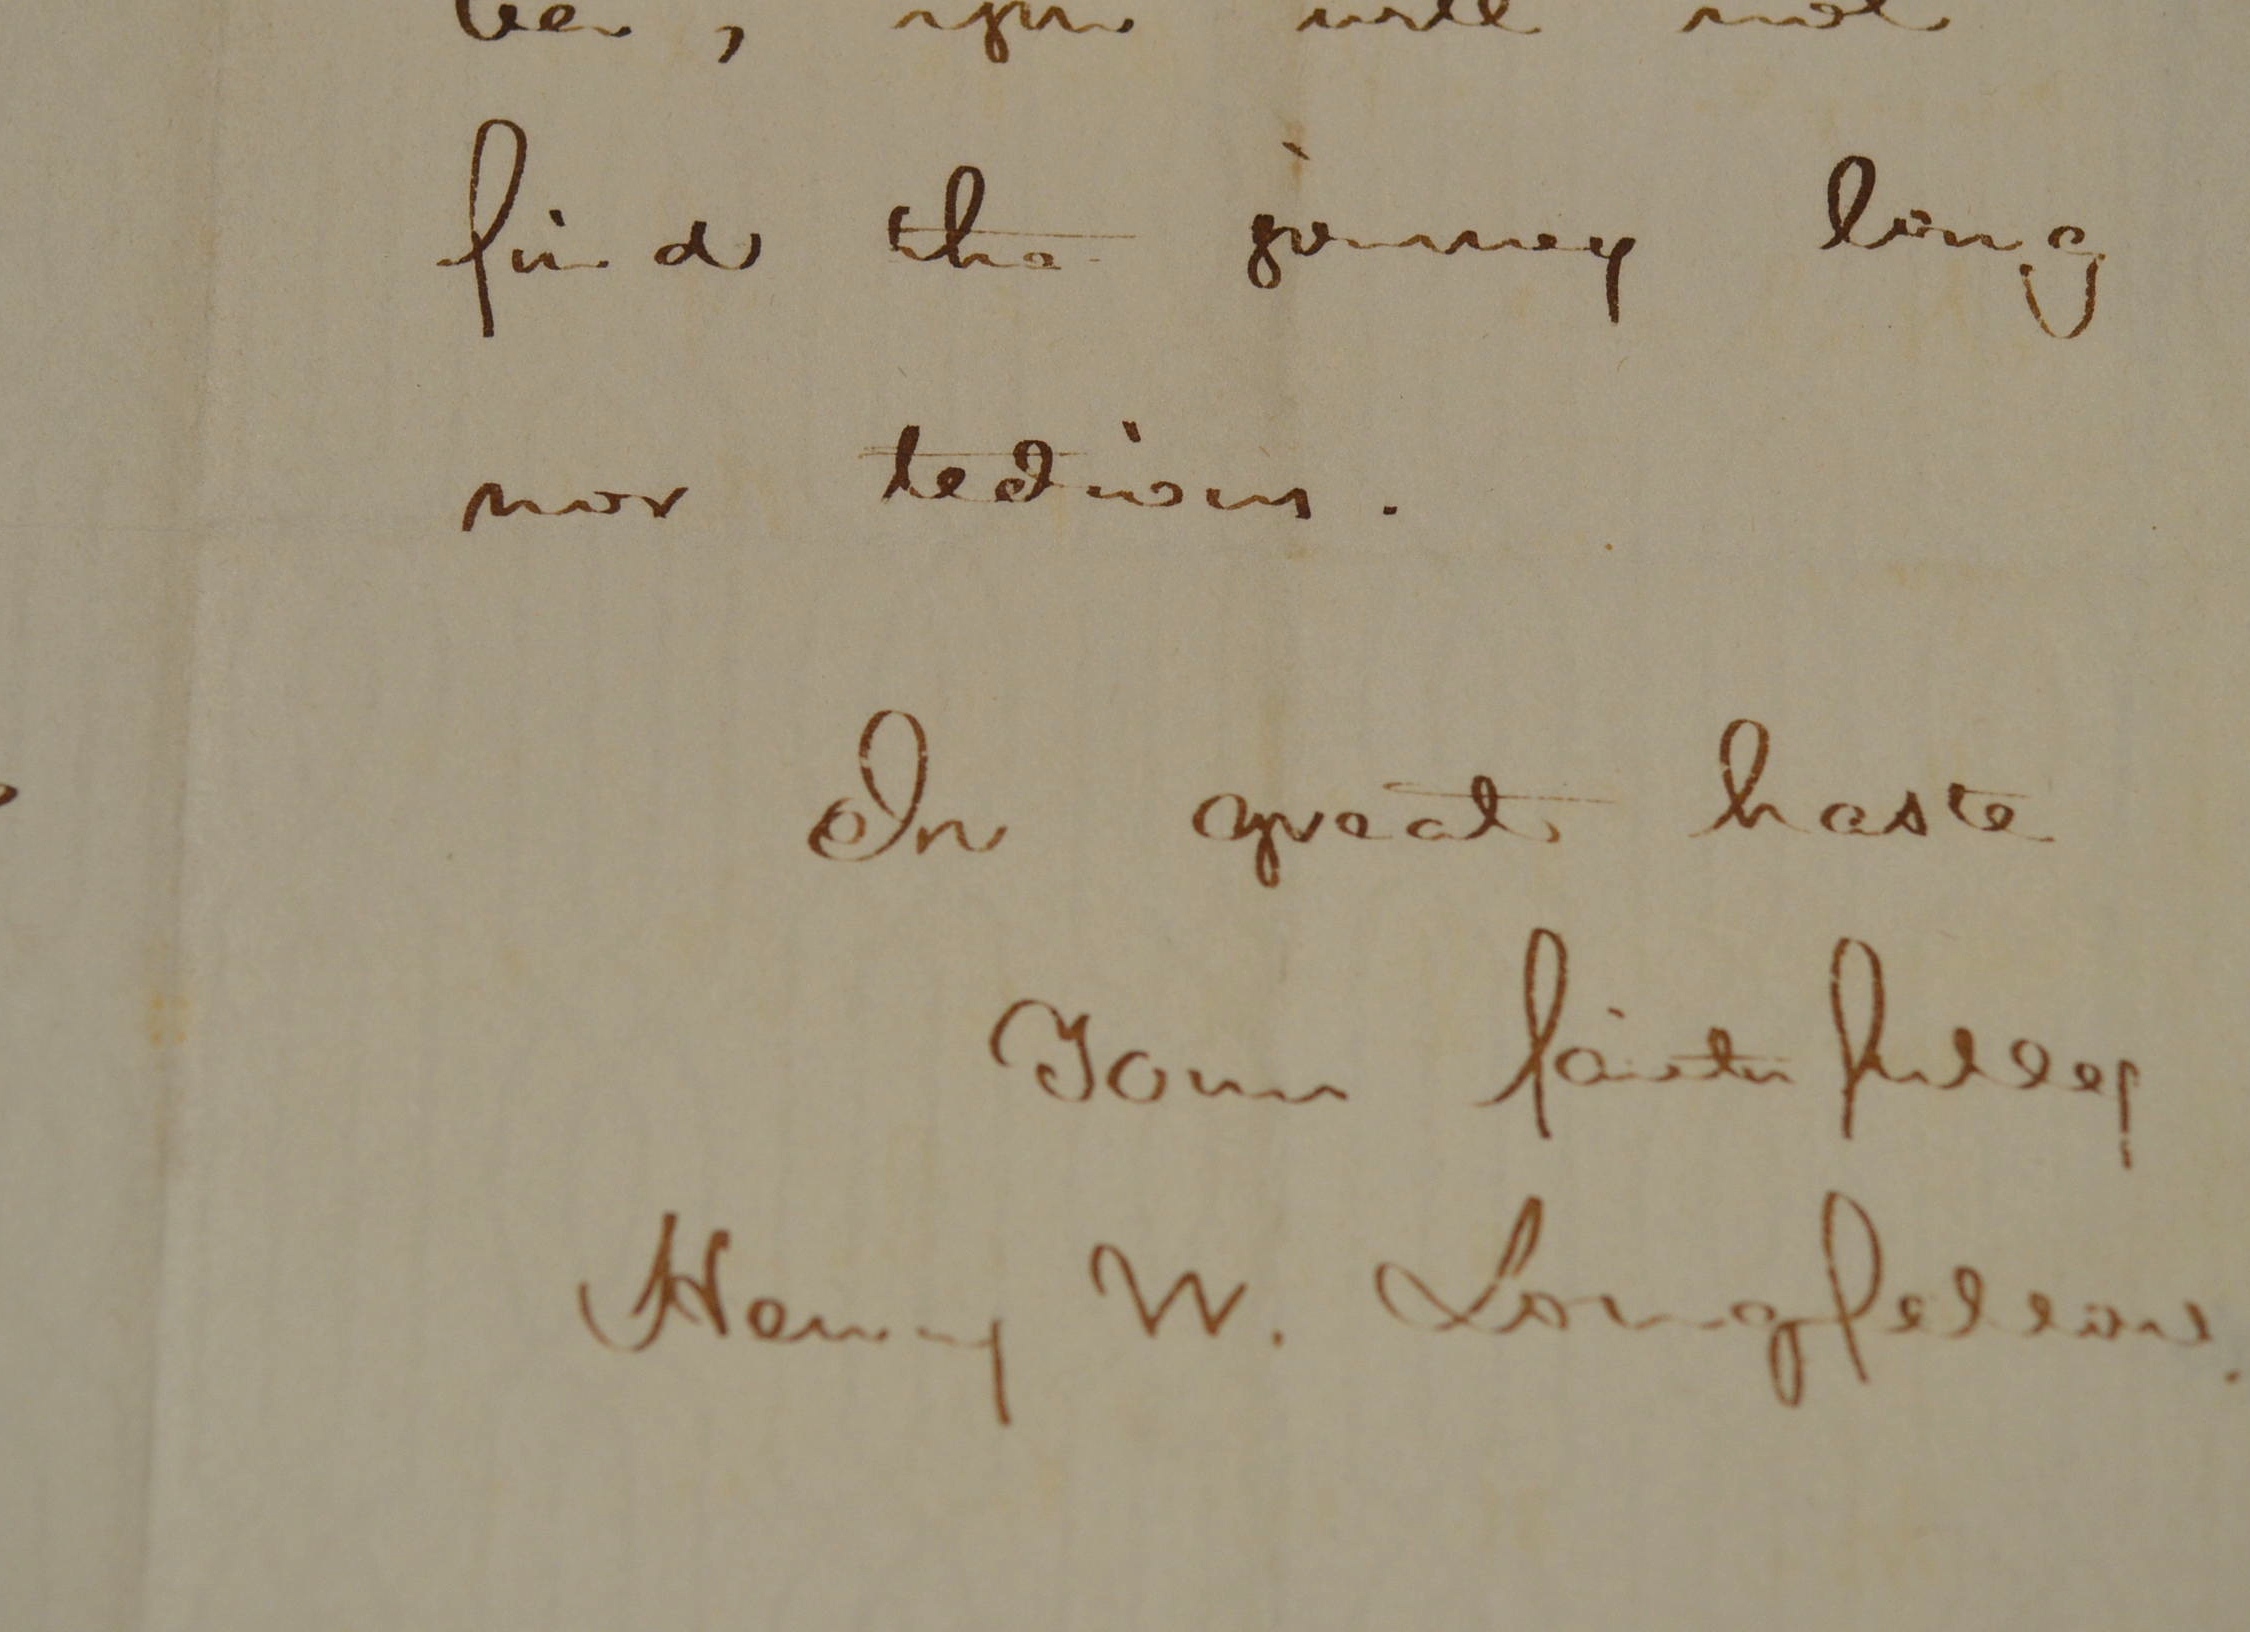 be, you will not
find the journey long
nor tedious.
In great haste
Yours faithfully
Henry W. Longfellow.